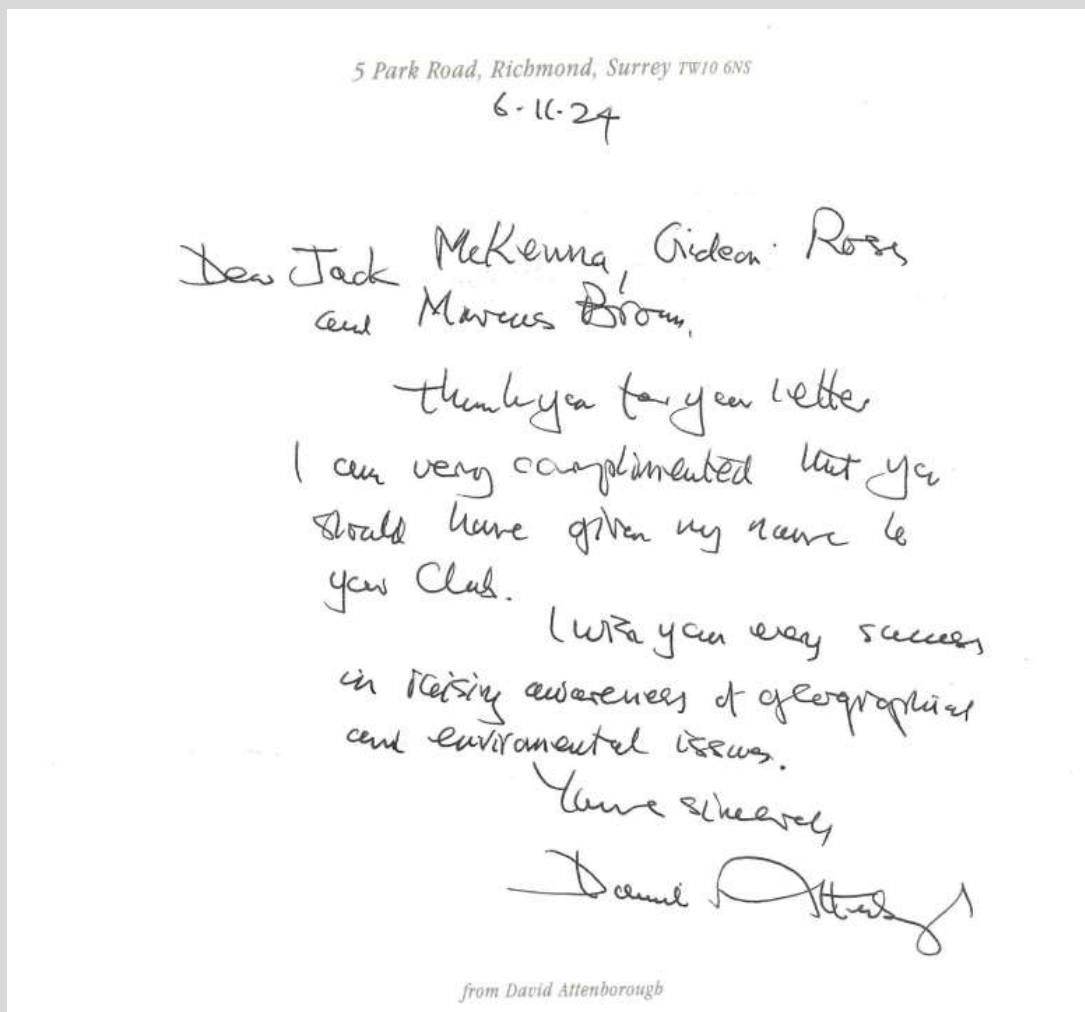 5 Park Road, Richmond, Surrey TW10 6NS
6.11.24
Dear Jack McKenna, Gideon Ross
and Marcus Brown,
Thank you for your letter
I am very complimented that you
should have given my name to
your Club.
I wish you every success
in raising awareness of geographical
and enviromental issues.
Yours sincerely
David Attenborough
from David Attenborough